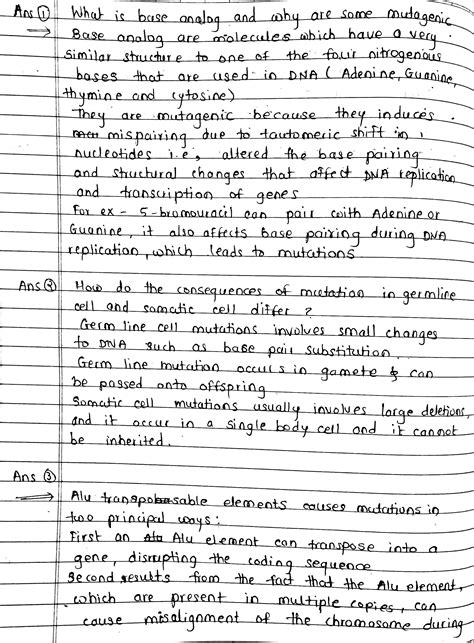 Ans ① What is base analog and why are some mutagenic
Base analog are molecules which have a very
similar structure to one of the four nitrogenous
bases that are used in DNA ( Adenine, Guanine,
thymine and cytosine)
They are mutagenic because they induces
mispairing due to tautomeric shift in
nucleotides i.e, altered the base pairing
and structural changes that affect DNA replication
and transcription of genes
For ex - 5-bromouracil can pair with Adenine or
Guanine, it also affects base pairing during DNA
replication, which leads to mutations
Ans ② How do the consequences of mutation in germline
cell and somatic cell differ ?
Germ line cell mutations involves small changes
to DNA such as base pair substitution.
Germ line mutation occurs in gamete & can
be passed onto offspring
Somatic cell mutations usually involves large deletions,
and it occur in a single body cell and it cannot
be inherited.
Ans ③
Alu transposable elements causes mutations in
two principal ways:
First an Alu element can transpose into a
gene, disrupting the coding sequence
Second results from the fact that the Alu element,
which are present in multiple copies, can
cause misalignment of the chromosome during